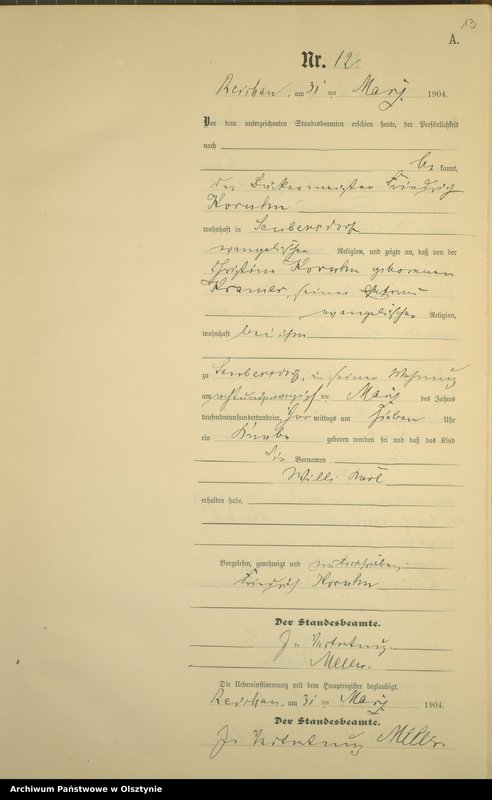 13
A.
Nr. 12.
Reichau, am 31 ten März 1904.
Vor dem unterzeichneten Standesbeamten erschien heute, der Persönlichkeit
nach
be kannt,
der Friedrich
Kornkn
wohnhaft in Seubersdorf
evangelischer Religion, und zeigte an, daß von der
Christine geborenen
Kramer, seiner Ehefrau
evangelischer Religion,
wohnhaft bei ihm
zu Seubersdorf, in seiner Wohnung
am achtundzwanzigsten März des Jahres
tausendneunhundertundvier, Vor mittags um sieben Uhr
ein Knabe geboren worden sei und daß das Kind
die Vornamen
Willi Karl
erhalten habe.
Vorgelesen, genehmigt und unterschrieben.
Friedrich
Der Standesbeamte.
In Vertretung
Meller.
Die Uebereinstimmung mit dem Hauptregister beglaubigt.
Reichau, am 31 ten März 1904.
Der Standesbeamte.
In Vertretung Meller.
Archiwum Państwowe w Olsztynie